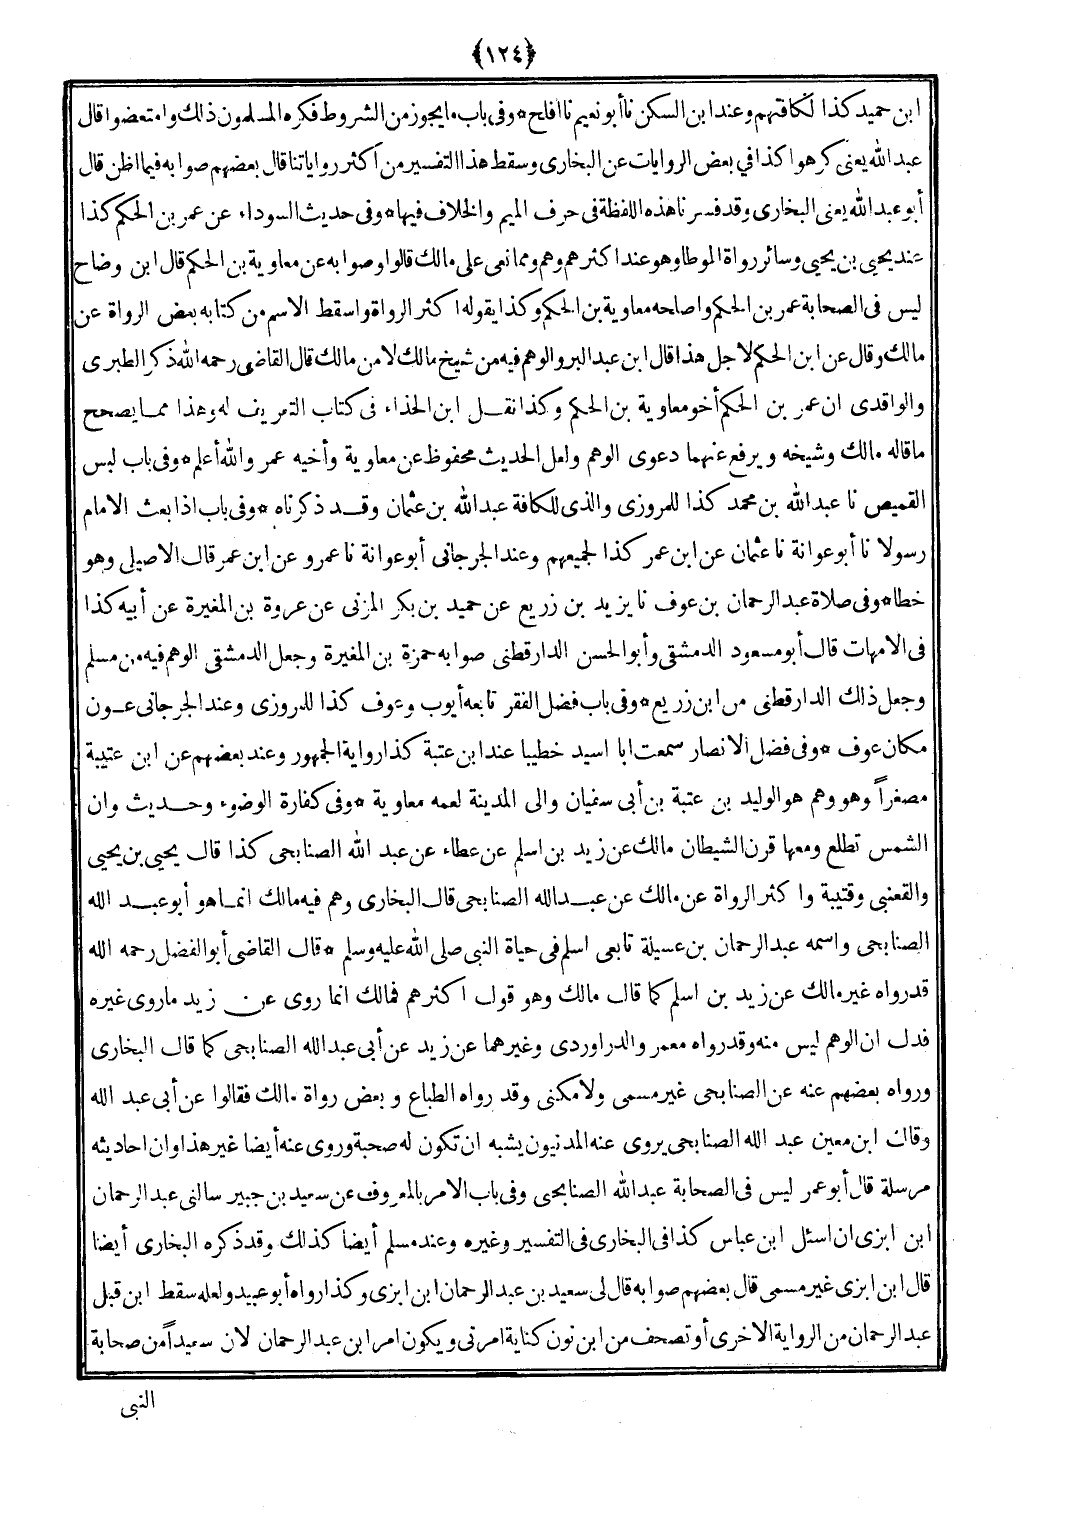 ﴿١٢٤﴾
ابن حميد كذا لكافتهم وعند ابن السكن نا أبو نعيم نا افلح * وفى باب ما يجوز من الشروط فكره المسلمون ذلك وامتعضوا قال
عبد الله يعنى كرهوا كذا في بعض الروايات عن البخارى وسقط هذا التفسير من أكثر رواياتنا قال بعضهم صوابه فيما اظن قال
أبو عبد الله يعنى البخارى وقد فسرنا هذه اللفظة فى حرف الميم والخلاف فيها * وفى حديث السوداء عن عمر بن الحكم كذا
عند يحيى بن يحيى وسائر رواة الموطا وهو عند اكثرهم وهم ومما نعى على مالك قالوا وصوابه عن معاوية بن الحكم قال ابن وضاح
ليس فى الصحابة عمر بن الحكم واصلحه معاوية بن الحكم وكذا يقوله اكثر الرواة واسقط الاسم من كتابه بعض الرواة عن
مالك وقال عن ابن الحكم لاجل هذا قال ابن عبد البر والوهم فيه من شيخ مالك لا من مالك قال القاضى رحمه الله ذكر الطبرى
والواقدى ان عمر بن الحكم أخو معاوية بن الحكم وكذا نقل ابن الحذاء فى كتاب التعريف له وهذا مما يصحح
ما قاله مالك وشيخه ويرفع عنهما دعوى الوهم ولعل الحديث محفوظ عن معاوية وأخيه عمر والله أعلم * وفى باب لبس
القميص نا عبد الله بن محمد كذا للمروزى والذى للكافة عبد الله بن عثمان وقد ذكرناه * وفى باب اذا بعث الامام
رسولا نا أبو عوانة نا عثمان عن ابن عمر كذا لجميعهم وعند الجرجانى أبو عوانة نا عمرو عن ابن عمر قال الاصيلى وهو
خطا * وفى صلاة عبد الرحمان بن عوف نا يزيد بن زريع عن حميد بن بكر المزنى عن عروة بن المغيرة عن أبيه كذا
فى الامهات قال أبو مسعود الدمشقى وأبو الحسن الدارقطنى صوابه حمزة بن المغيرة وجعل الدمشقى الوهم فيه من مسلم
وجعل ذلك الدارقطنى من ابن زريع * وفى باب فضل الفقر تابعه أيوب وعوف كذا للمروزى وعند الجرجانى عون
مكان عوف * وفى فضل الانصار سمعت ابا اسيد خطيبا عند ابن عتبة كذا رواية الجمهور وعند بعضهم عن ابن عتيبة
مصغراً وهو وهم هو الوليد بن عتبة بن أبى سفيان والى المدينة لعمه معاوية * وفى كفارة الوضوء وحديث وان
الشمس تطلع ومعها قرن الشيطان مالك عن زيد بن اسلم عن عطاء عن عبد الله الصنابحى كذا قال يحيى بن يحيى
والقعنبى وقتيبة واكثر الرواة عن مالك عن عبد الله الصنابحى قال البخارى وهم فيه مالك انما هو أبو عبد الله
الصنابحى واسمه عبد الرحمان بن عسيلة تابعى اسلم فى حياة النبى صلى الله عليه وسلم * قال القاضى أبو الفضل رحمه الله
قد رواه غير مالك عن زيد بن اسلم كما قال مالك وهو قول اكثرهم فمالك انما روى عن زيد ما روى غيره
فدل ان الوهم ليس منه وقد رواه معمر والدراوردى وغيرهما عن زيد عن أبى عبد الله الصنابحى كما قال البخارى
ورواه بعضهم عنه عن الصنابحى غير مسمى ولا مكنى وقد رواه الطباع وبعض رواة مالك فقالوا عن أبى عبد الله
وقال ابن معين عبد الله الصنابحى يروى عنه المدنيون يشبه ان تكون له صحبة وروى عنه أيضا غير هذا وان احاديثه
مرسلة قال أبو عمر ليس فى الصحابة عبد الله الصنابحى وفى باب الامر بالمعروف عن سعيد بن جبير سالنى عبد الرحمان
ابن ابزى ان اسئل ابن عباس كذا فى البخارى فى التفسير وغيره وعند مسلم أيضا كذلك وقد ذكره البخارى أيضا
قال ابن ابزى غير مسمى قال بعضهم صوابه قال لى سعيد بن عبد الرحمان ابن ابزى وكذا رواه أبو عبيد ولعله سقط ابن قبل
عبد الرحمان من الرواية الاخرى أو تصحف من ابن نون كناية امرنى ويكون امر ابن عبد الرحمان لان سعيداً من صحابة
النبى